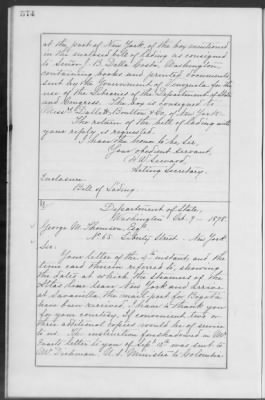 574
at the port of New York, of the box mentioned
in the enclosed bill of lading as consigned
to Senor J. B. Dalla Costa, Washington,
containing books and printed documents,
sent by the Government of Venezuela for the
use of the Libraries of the Department of State
and Congress. The box is consigned to
Messrs Dallett, Boulton & Co, of New York.
The return of the bill of lading with
your reply, is requested.
I have the honor to be, Sir,
Your obedient servant,
F. W. Seward,
Acting Secretary.
Enclosure
Bill of Lading.
Department of State,
Washington, Oct. 9 - 1878.
George W. Thomson, Esqr.
No 65 Liberty Street. - New York
Sir:
Your letter of the instant, and the
time card therein referred to, showing
the dates at which the steamers of the
Atlas line leave New York and arrive
at Savanilla, the mail-port for Bogota
have been received. I have to thank you
for your courtesy. If convenient two or
three additional copies would be of service
to us. The instruction foreshadowed in Mr
letter to you of Sep. 12th was sent to
Mr Dichman U. S. Minister to Colombia